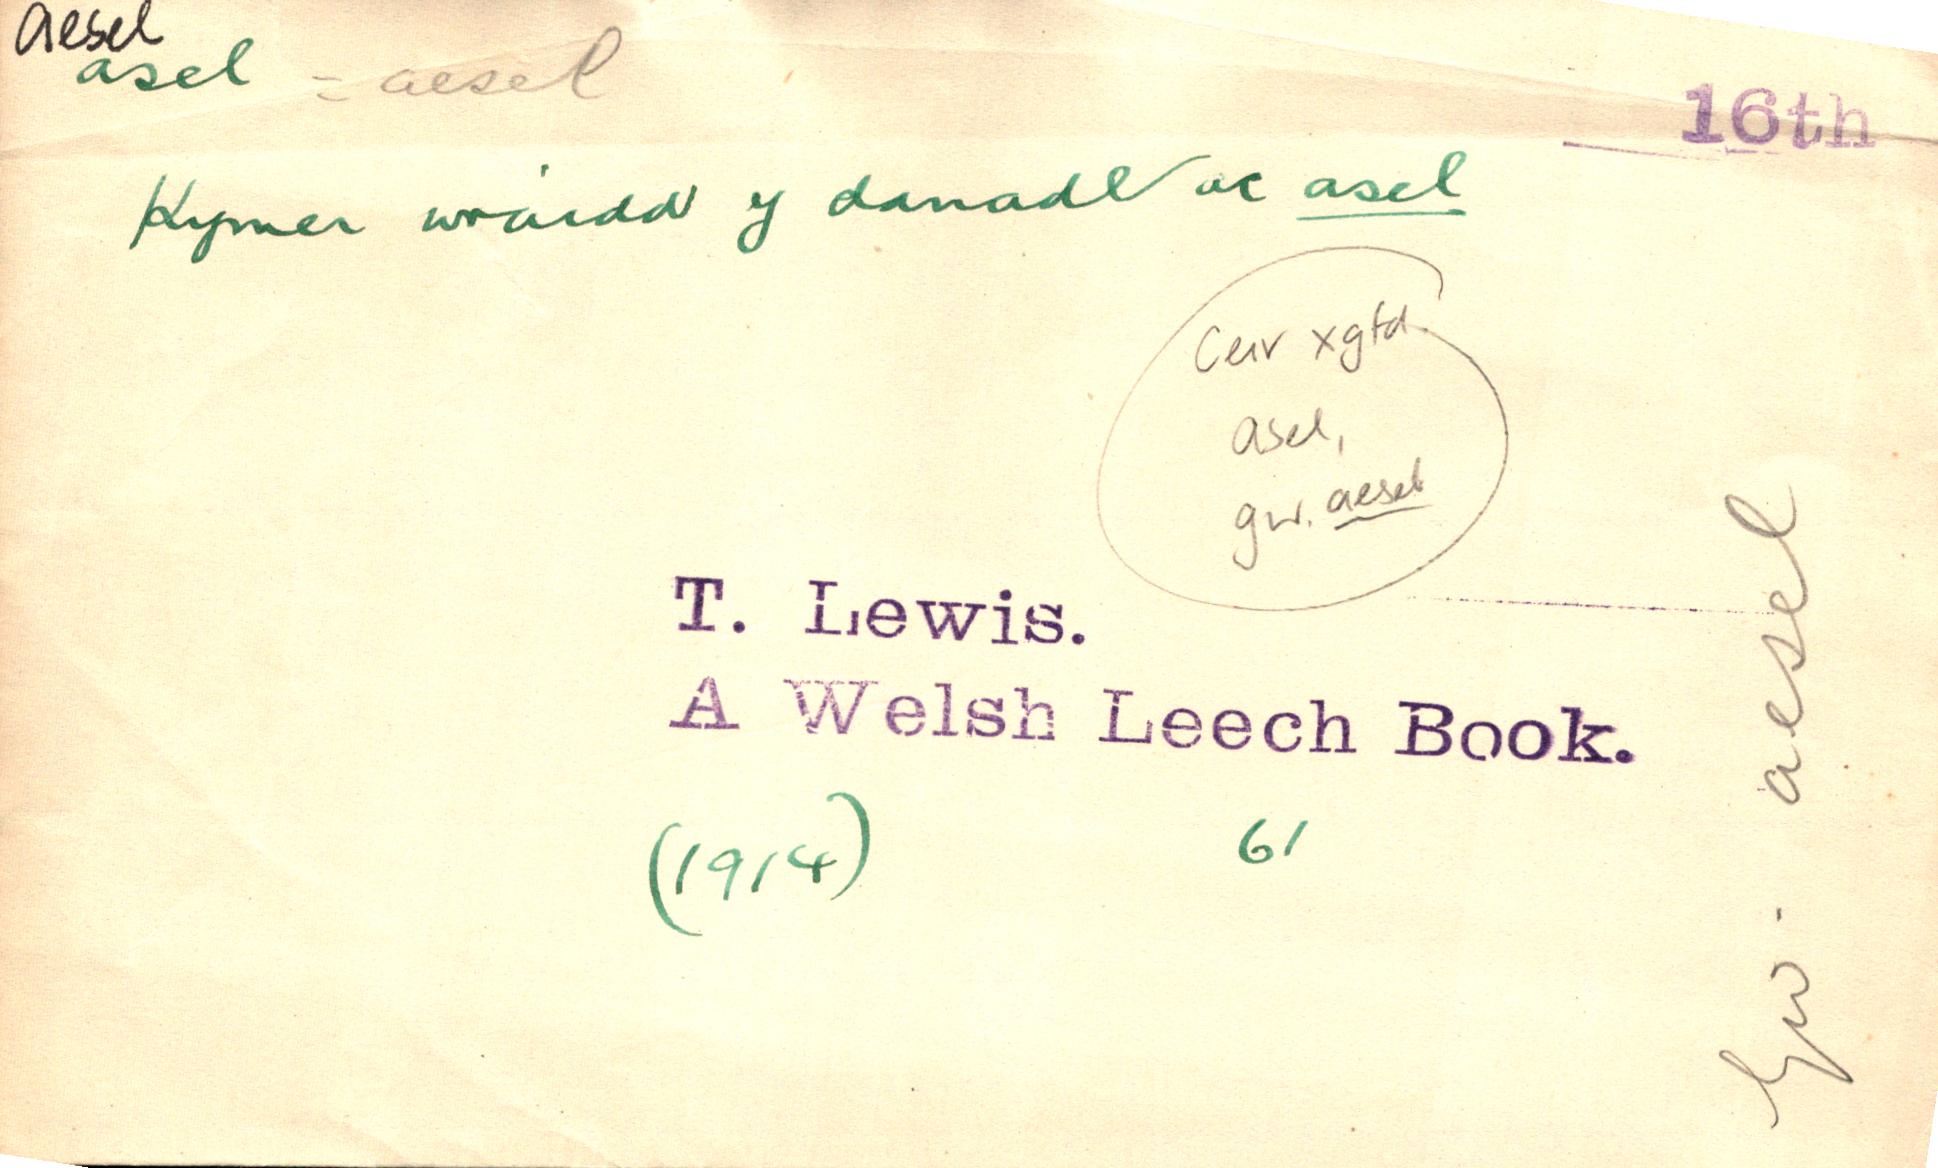 aesel
asel = aesel
16th
Kymer wraidd y danadl ac asel
Ceir xgfd.
asel,
gw. aesel
T. Lewis.
A Welsh Leech Book.
(1914) 61
gw. aesel